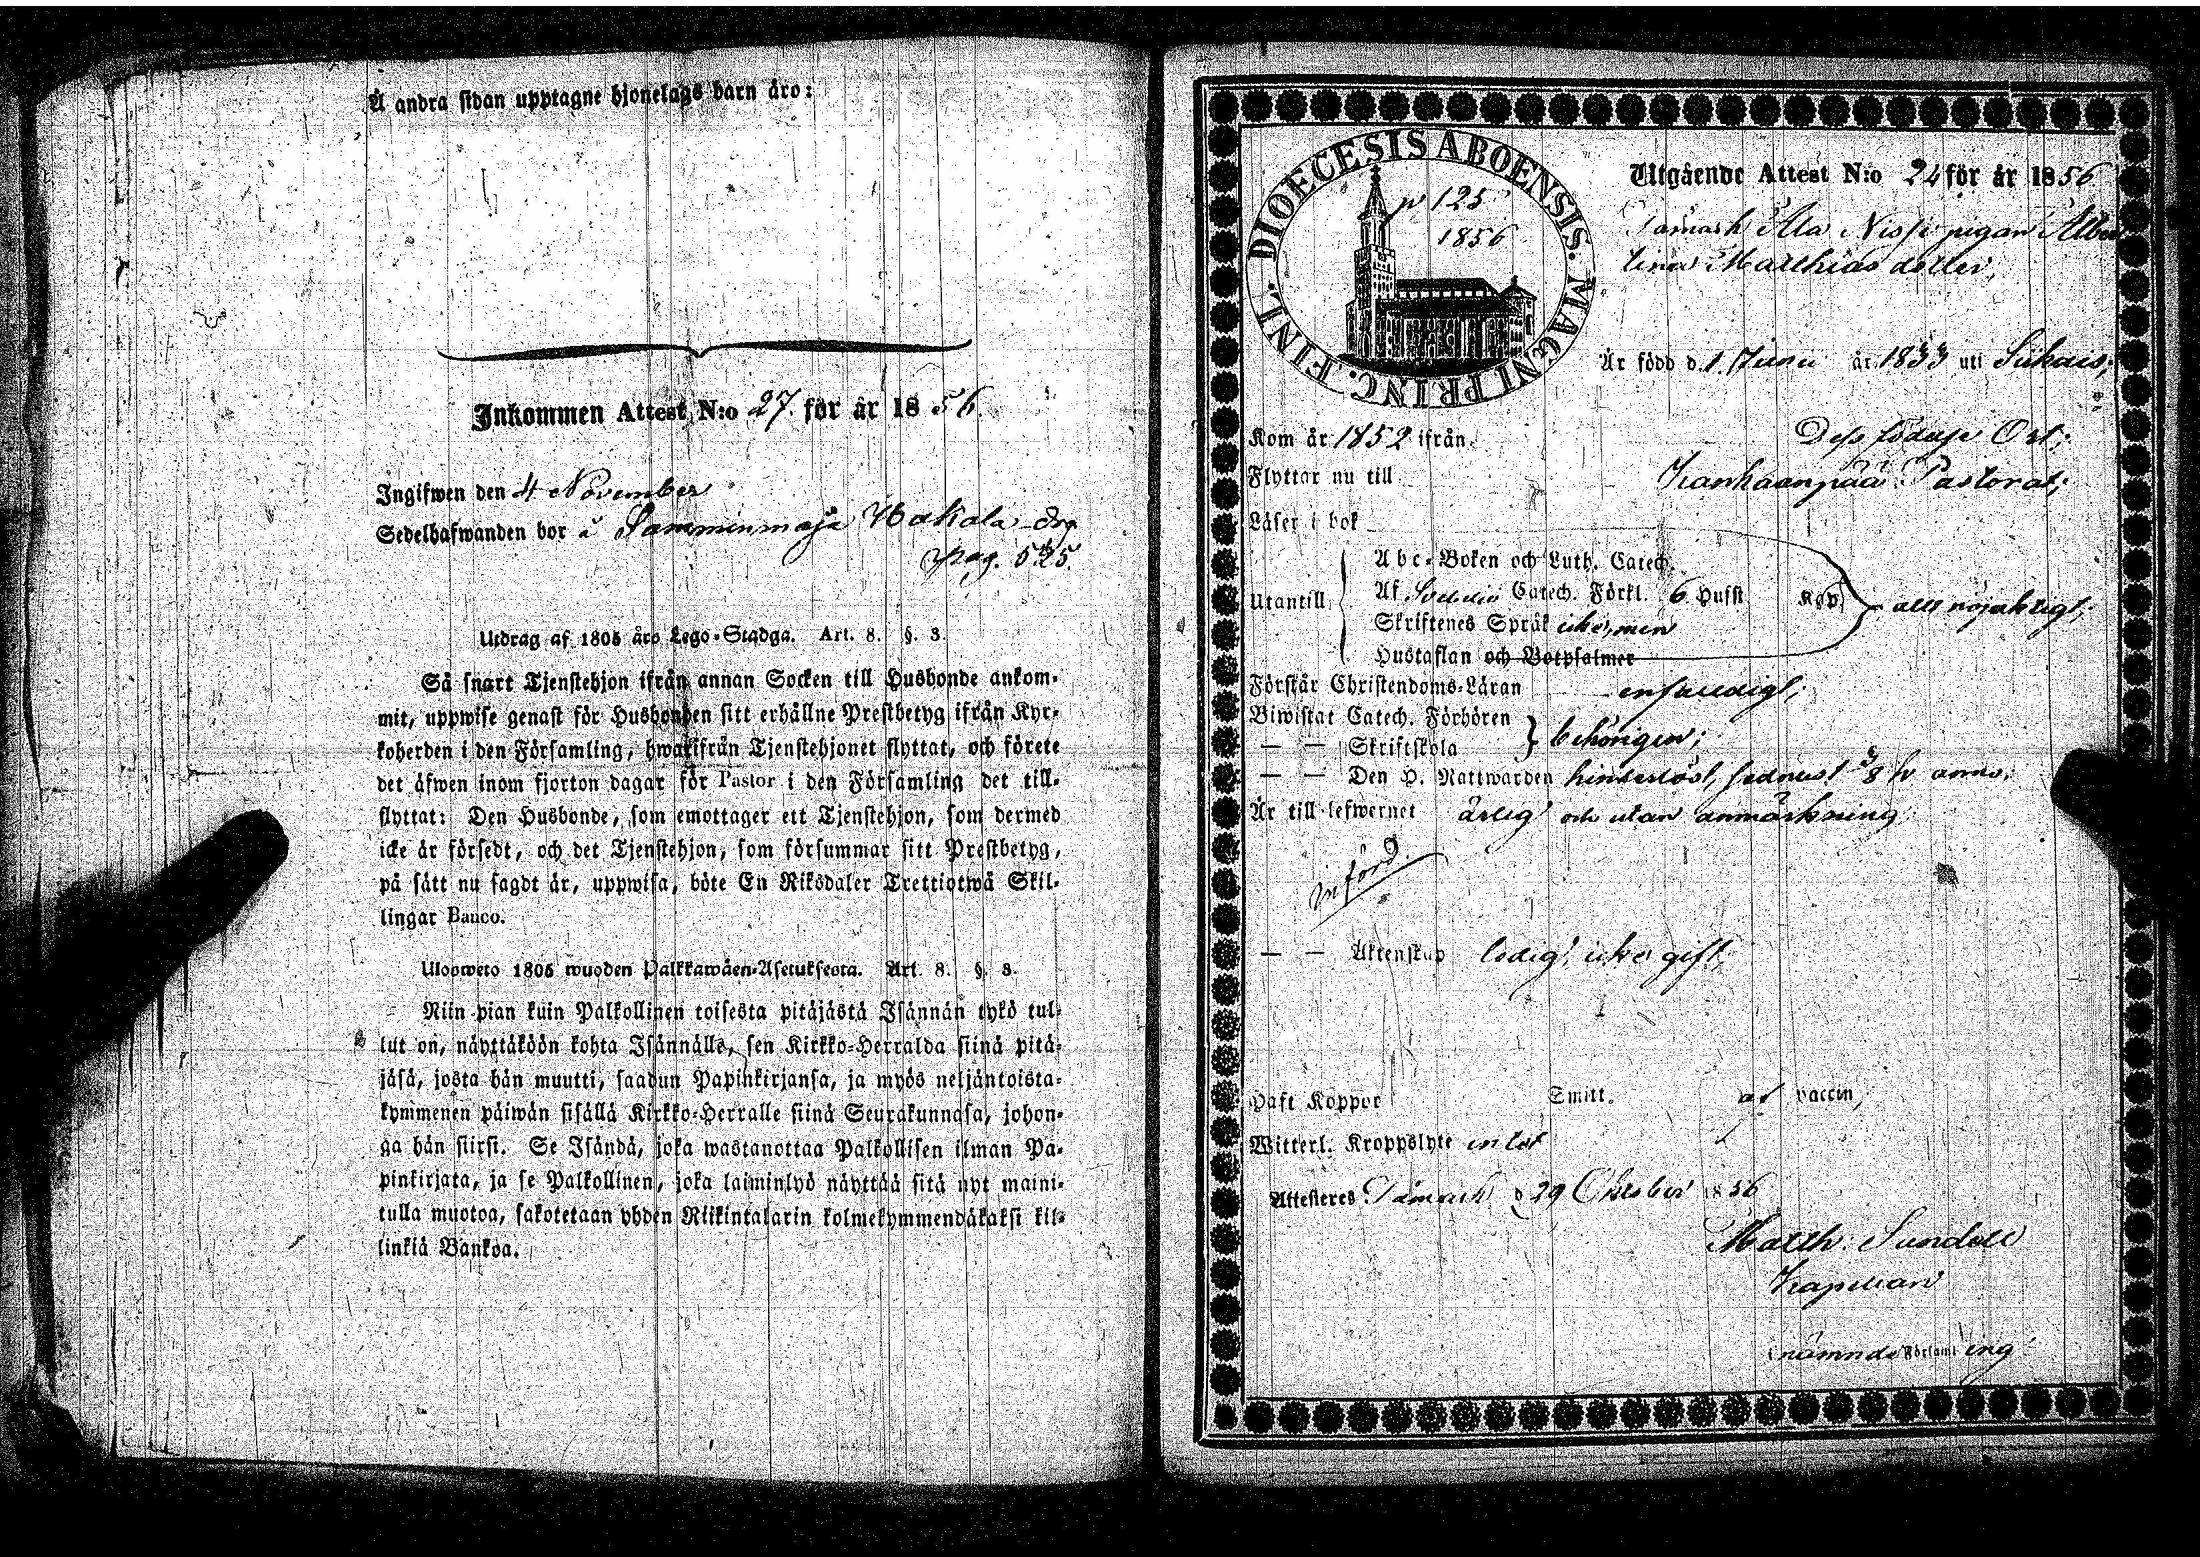 Å andra sidan upptagne hjonelags barn äro:
Inkommen Attest N:o 27. för år 1856.
Ingifwen den 4 November
Sedelhafwanden bor å Samminmaja Hakala
pag. 525.
Utdrag af 1805 års Lego-Stadga. Art. 8. §. 3.
Så snart Tjenstehjon ifrån annan Socken till Husbonde ankom-
mit, uppwise genast för Husbonden sitt erhållne Prestbetyg ifrån Kyr-
koherden i den Församling, hwarifrån Tjenstehjonet flyttat, och förete
det äfwen inom fjorton dagar för Pastor i den Församling det till-
flyttat: Den Husbonde, som emottager ett Tjenstehjon, som dermed
icke är försedt, och det Tjenstehjon, som försummar sitt Prestbetyg,
på sätt nu sagdt är, uppwisa, böte En Riksdaler Trettiotwå Skil-
lingar Banco.
Ulosweto 1805 wuoden Palkkawäen-Asetuksesta. Art. 8. §. 3.
Niin pian kuin Palkollinen toisesta pitäjästä Isännän tykö tul-
lut on, näyttäköön kohta Isännälle, sen Kirkko-Herralda siinä pitä-
jäsä, josta hän muutti, saadun Papinkirjansa, ja myös neljäntoista-
kymmenen päiwän sisällä Kirkko-Herralle siinä Seurakunnasa, johon-
ga hän siirsi. Se Isändä, joka wastanottaa Palkollisen ilman Pa-
pinkirjata, ja se Palkollinen, joka laiminlyö näyttää sitä nyt maini-
tulla muotoa, sakotetaan yhden Riikintalarin kolmekymmendäkaksi kil-
linkiä Bankoa.
DIOECESIS ABOENSIS. MAGNI PRINC. FINL.
p 125
1856
Utgående Attest N:o 24 för år 1856
Tämark Ala Nissi pigan Alber
tina Matthias dotter,
Är född d. 1 Juni år 1833 uti Siikais;
Kom år 1852 ifrån Dess födelse Ort;
Flyttar nu till Kankaanpää Pastorat;
Läser i bok
Utantill
Abc-Boken och Luth. Catech.
Af Svebelii Catech. Förkl. 6 Hufst Kap.
Skriftenes Språk icke, men
Hustaflan och Botpsalmer
allt nöjaktigt;
Förstår Christendoms-Läran enfaldigt;
Biwistat Catech. Förhören
— — Skriftskola
behörigen;
— — Den H. Nattwarden hinderlöst, sednast
Är till lefwernet ärlig och utan anmärkning
införd
— — Äktenskap ledig, icke gift;
Haft Koppor Smitt. af vaccin,
Witterl. Kroppslyte intet
Attesteres Tämark d 29 Oktober 1856
Matth: Sundell
Kapellan
i nämnde Församl ing